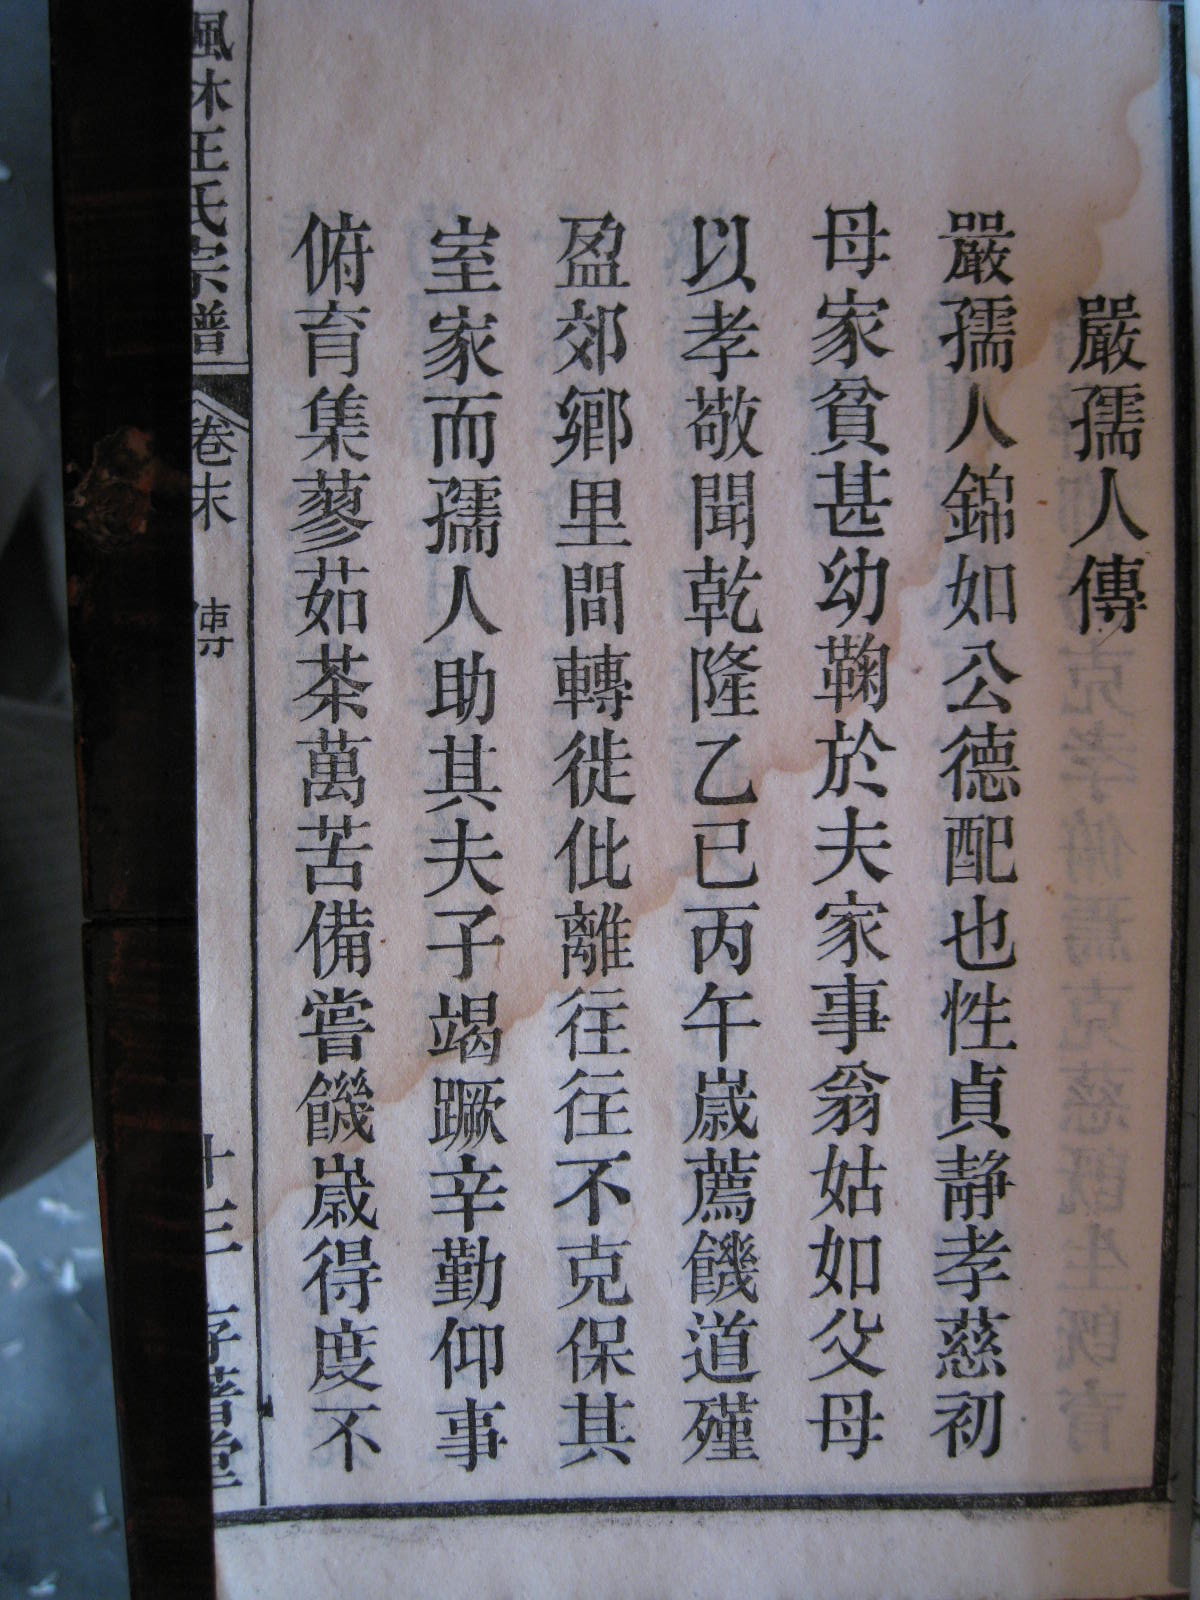 嚴孺人傳
嚴孺人錦如公德配也性貞靜孝慈初
母家貧甚幼鞠於夫家事翁姑如父母
以孝敬聞乾隆乙巳丙午歲薦饑道殣
盈郊鄉里間轉徙仳離往往不克保其
室家而孺人助其夫子竭蹶辛勤仰事
俯育集蓼茹荼萬苦備嘗饑歲得度不
楓林王氏宗譜
卷末
傳
十三
存著堂